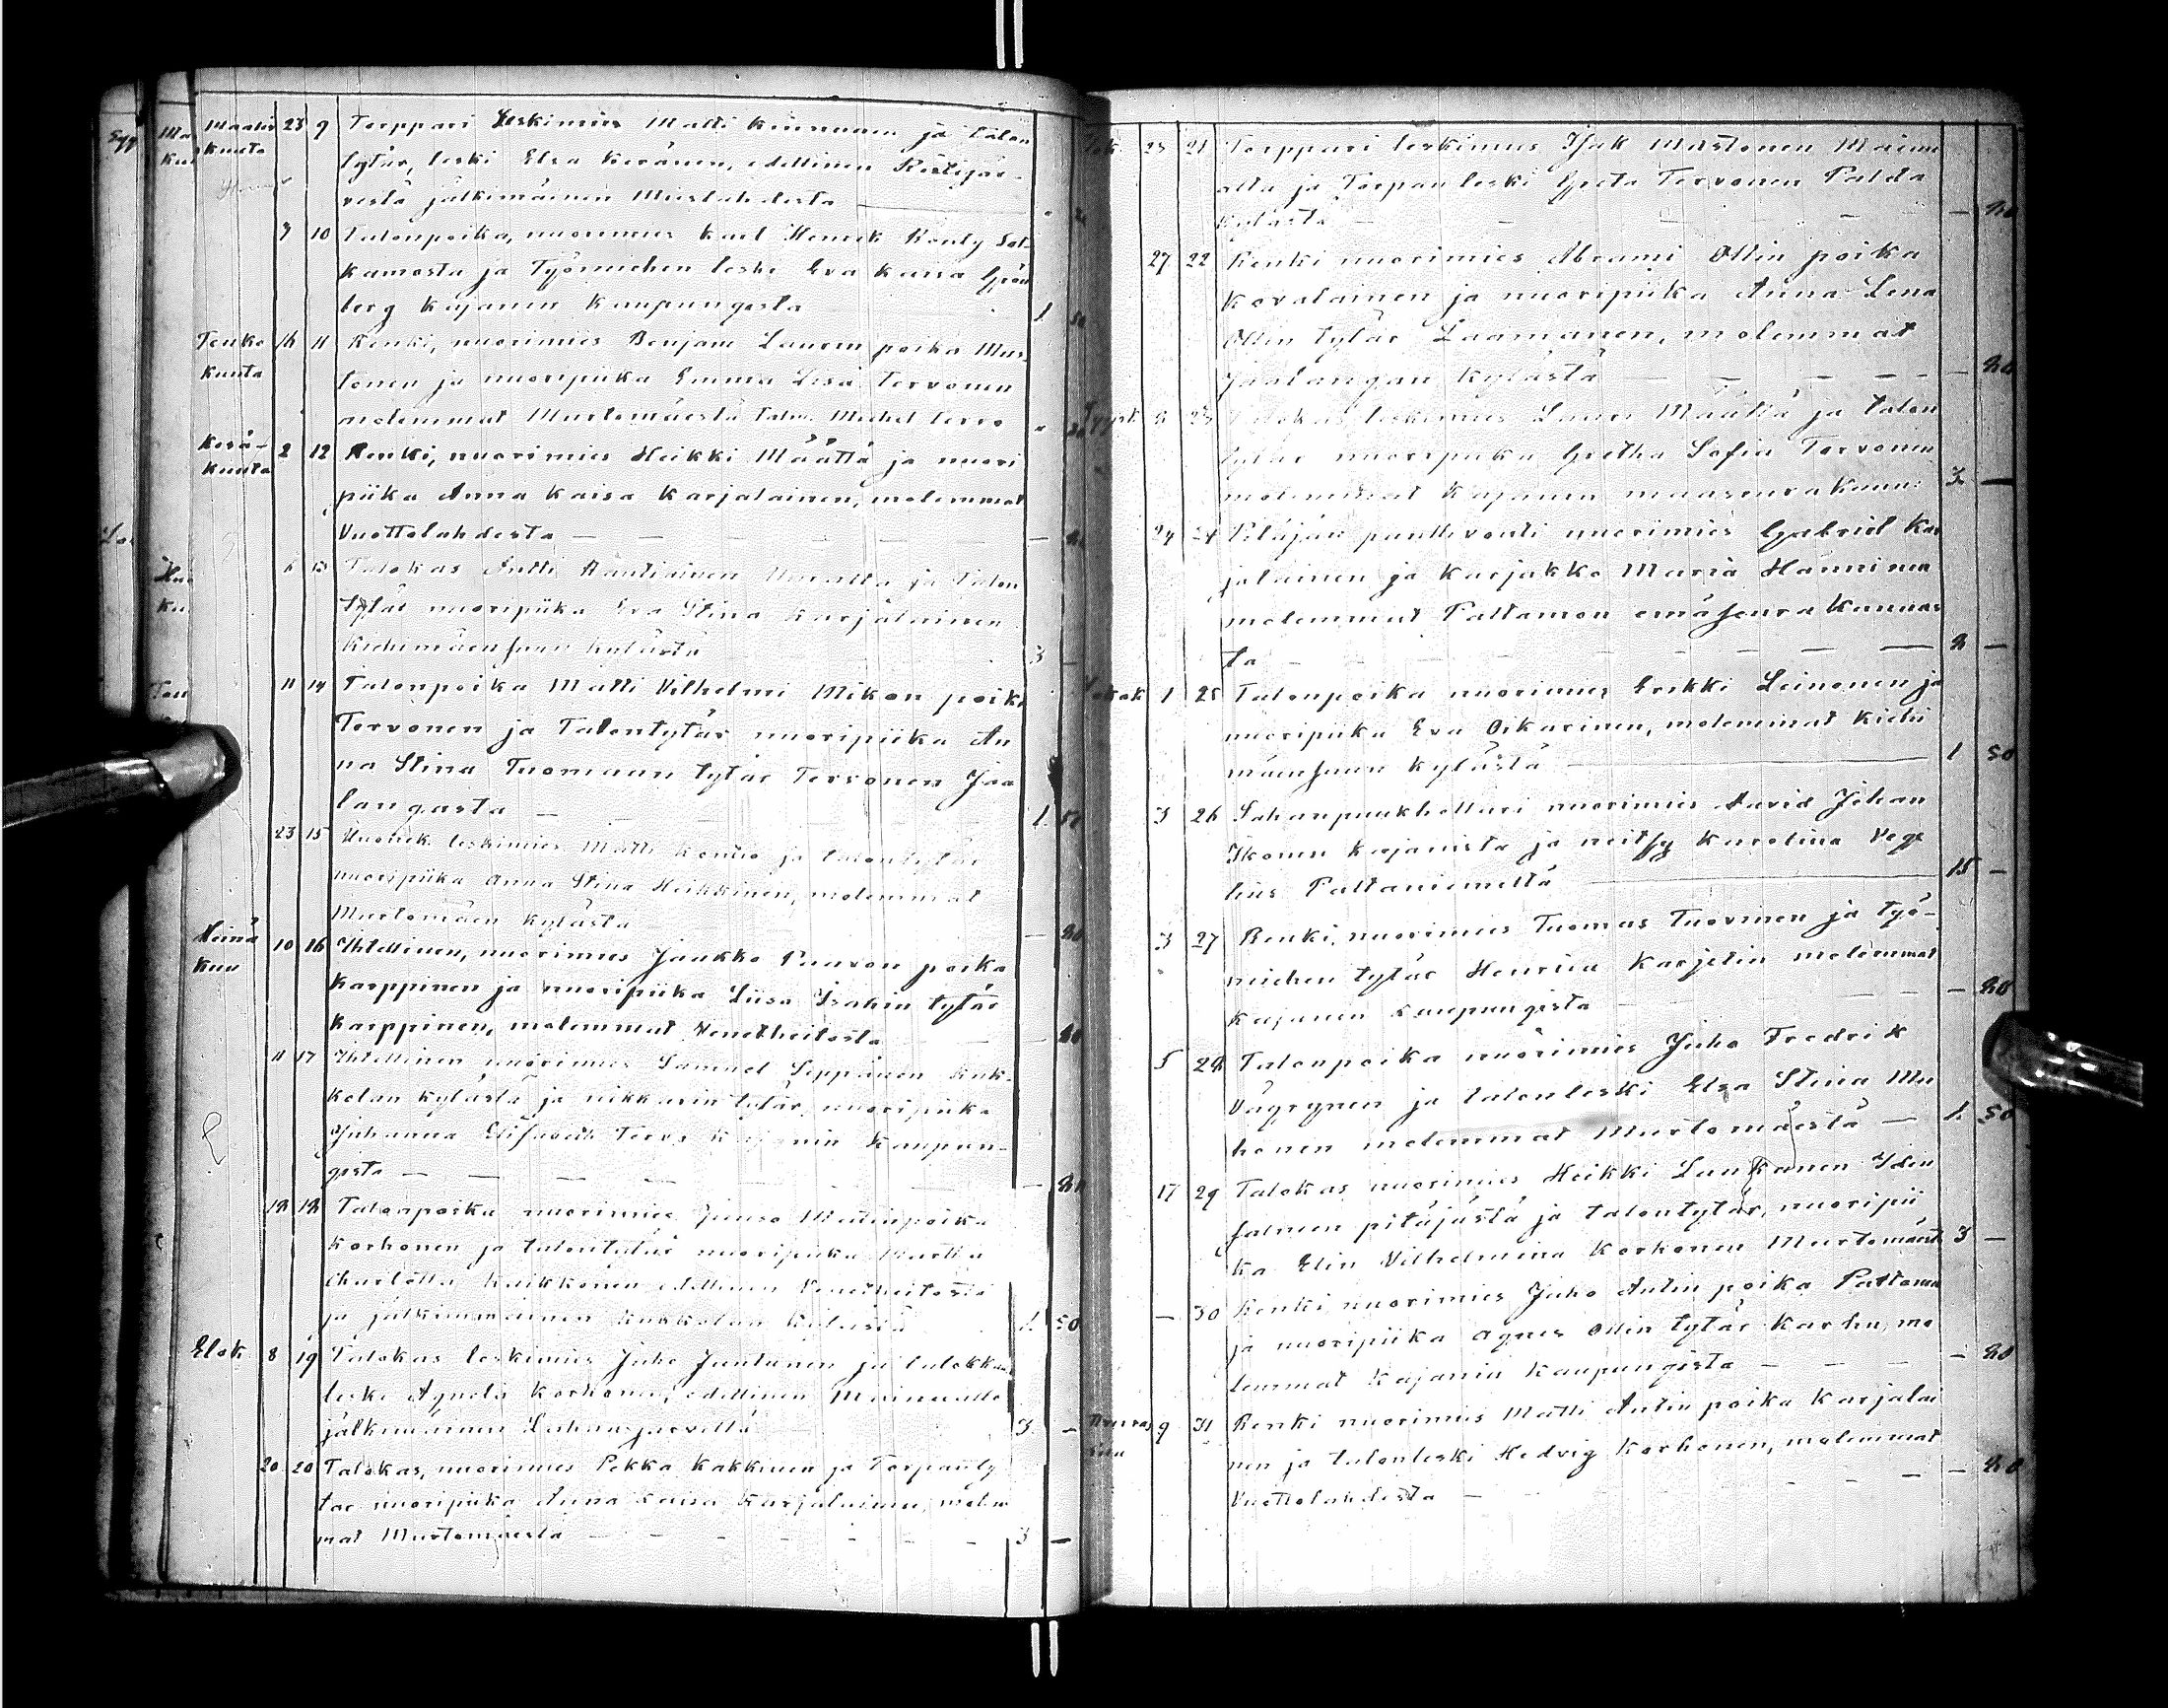 Maalis 23 9 Torppari Leskimies Matti Kinnunen ja talon
kuuta tytär, leski Elsa Keränen, edellinen Ristijär-
vestä jälkimäinen Mieslahdesta
10 Talonpoika, nuorimies Karl Henrik Ronty Sot-
kamosta ja Työmiehen leski Eva Kaisa Grön
berg Kajanin Kaupungista 1 50
Touko 16 11 Renki, nuorimies Benjam Laurin poika Mus-
kuuta tonen ja nuoripiika Emma Lisa Tervonen
molemmat Murtomäestä
Kesä- 2 12 Renki, nuorimies Heikki Määttä ja nuori
kuuta piika Anna Kaisa Karjalainen, molemmat
Vuottolahdesta —
6 13 Talokas Antti Rautiainen ja talon
tytär nuoripiika Eva Stina Karjalainen
Kiehimäensuun kylästä 3 —
11 14 Talonpoika Matti Vilhelmi Mikon poika
Tervonen ja Talontytär nuoripiika An
na Stina Tuomaan tytär Tervonen Jaa
langasta — 1.
23 15 leskimies Matti Kemo ja talontytär
nuoripiika Anna Stina Heikkinen, molemmat
Murtomäen kylästä — 80
Heinä 10 16 Ihtellinen, nuorimies Jaakko Paavon poika
kuu Karppinen ja nuoripiika Liisa Isakin tytär
Karppinen, molemmat Venetheitosta 80
11 17 Ihtellinen nuorimies Samuel Seppänen Kuk-
kolan kylästä ja nikkarin tytär, nuoripiika
Juhanna Elisabeth Tervo Kajanin Kaupun-
gista — 80
18 18 Talonpoika nuorimies Juuso Matinpoika
Korhonen ja talontytär nuoripiika Martta
Charlotta Kaikkonen edellinen Venetheitosta
ja jälkimmäinen Kukkolan kylästä 1. 50
Elok. 8 19 Talokas leskimies Juho Juntunen ja talokkaan
leski Agneta Korhonen, edellinen
jälkimäinen Lahnasjärveltä 3. —
20 20 Talokas, nuorimies Pekka Kakkinen ja Torpanty
tär nuoripiika Anna Kaisa Karjalainen, molem
mat Murtomäestä — 3 —
21 Torppari leskimies Isak Mustonen
alta ja Torpanleski Greta Tervonen Palda
kylästä — 80
27 22 Renki nuorimies Abrami Ollin poika
Kovalainen ja nuoripiika Anna Lena
Ollin tytär Laamanen, molemmat
Jaalangan kylästä — 80
Syysk. 8 23 Talokas leskimies Lauri Määttä ja talon
tytär nuoripiika Gretha Sofia Tervonen
molemmat Kajanin maaseurakun: 3 —
24 24 Pitäjän punttivouti nuorimies Gabriel Kar
jalainen ja Karjakko Maria Hänninen
molemmat Paltamon emäseurakunnas
ta — 8 —
Lokak 1 25 Talonpoika nuorimies Erikki Leinonen ja
nuoripiika Eva Oikarinen, molemmat Kiehi
mäensuun kylästä 1 50
3 26 Sahanpuukhollari nuorimies David Johan
Ikonen Kajanista ja neitsy Karolina Vege
lius Paltaniemeltä 15 —
3 27 Renki, nuorimies Tuomas Tuovinen ja työ-
miehen tytär Henriia Karjetin molemmat
Kajanin kaupungista — 80
5 28 Talonpoika nuorimies Juho Fredrik
Väyrynen ja talonleski Elsa Stina Mu
honen molemmat Murtomäestä — 1. 50
17 29 Talokas nuorimies Heikki Laukkanen Iden
salmen pitäjästä ja talontytär, nuoripii
ka Elin Vilhelmina Korhonen Murtomäest 3 —
— 30 Renki nuorimies Juho Antin poika Paltoma
ja nuoripiika Agnes Ollin tytär Karhu, mo
lemmat Kajanin Kaupungista — 80
Marras 9 31 Renki nuorimies Matti Antin poika Karjalai
kuu nen ja talonleski Hedvig Korhonen, molemmat
Vuottolahdesta — 80